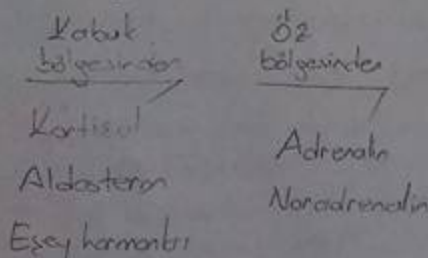 Kabuk
bölgesinden
Kortisol
Aldosteron
Eşey hormonları
Öz
bölgesinden
Adrenalin
Noradrenalin